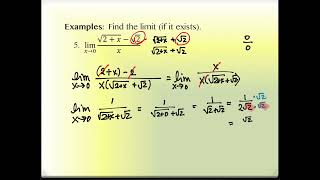 Examples: Find the limit (if it exists).
5. lim x→0 (√2+x − √2)/x · (√2+x + √2)/(√2+x + √2) 0/0
lim x→0 ((2+x) − 2)/(x(√2+x + √2)) = lim x→0 x/(x(√2+x + √2))
lim x→0 1/(√2+x + √2) = 1/(√2+0 + √2) = 1/(√2+√2) = 1/(2√2) · √2/√2
= √2